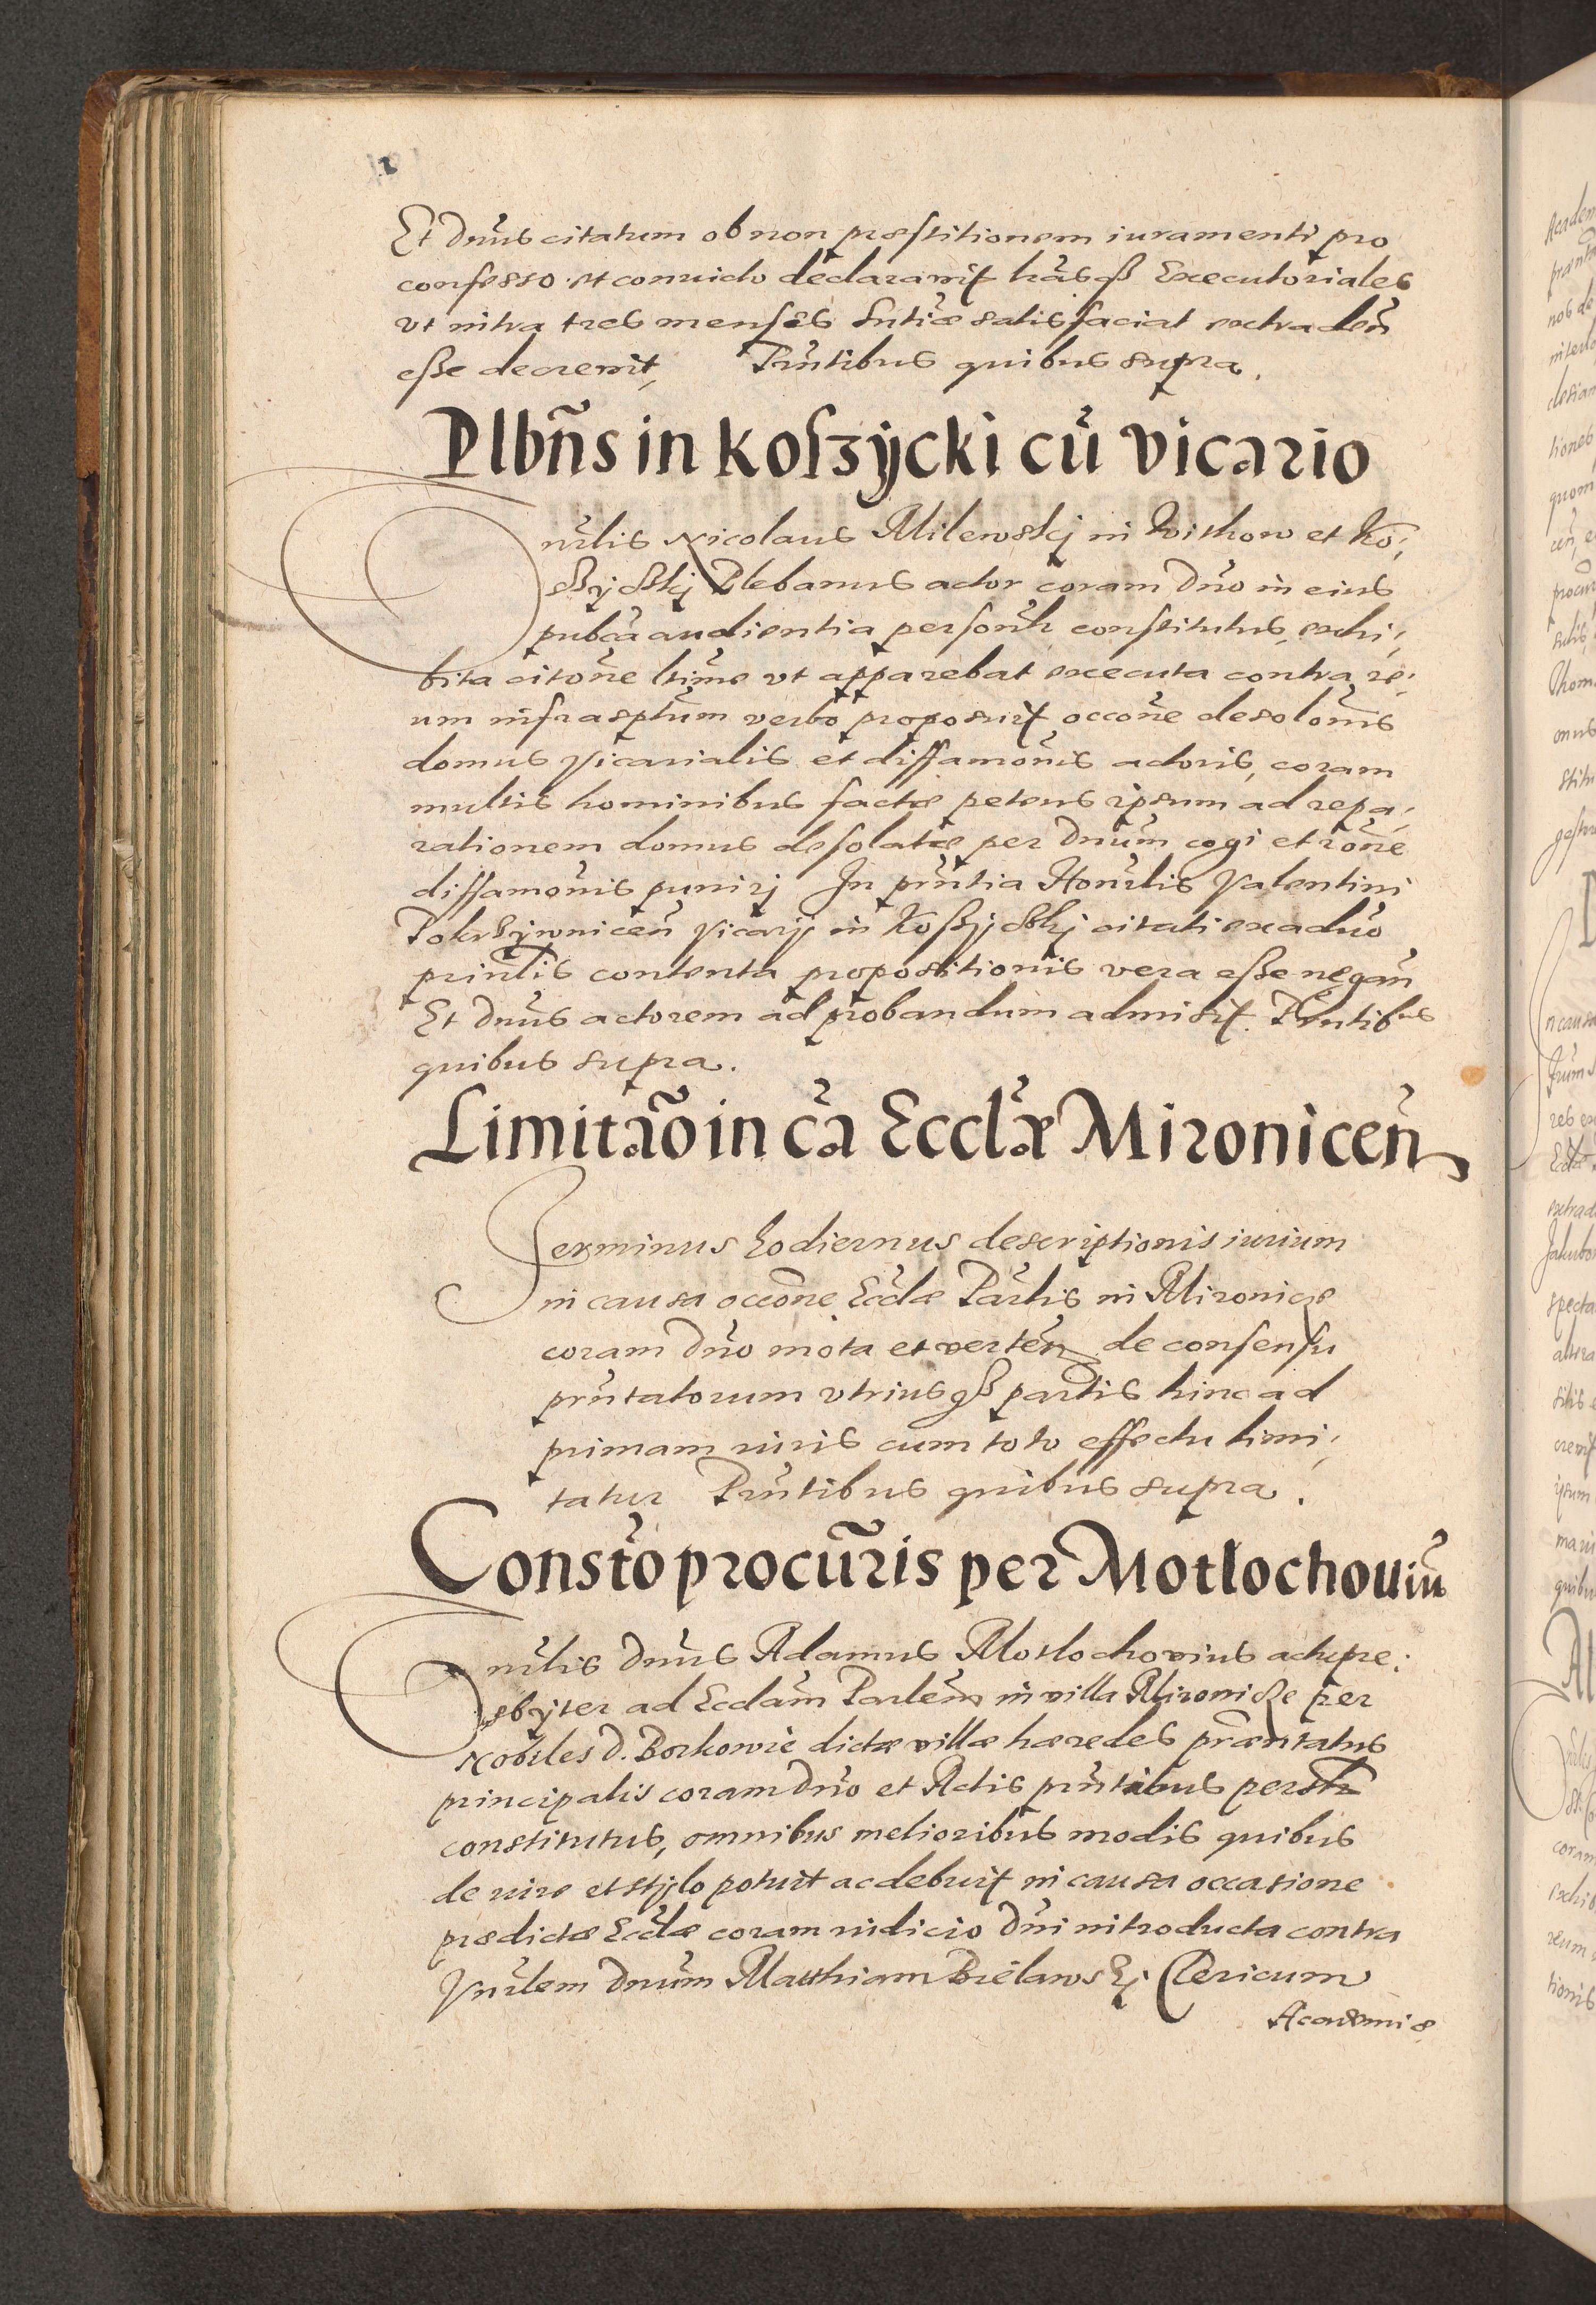 Et Dnus citatum ob non præstitionem iuramenti pro
confesso et convicto declaravit lras qz Executoriales
vt intra tres menses sntiæ satisfaciat extraden
esse decrevit, Pntibus quibus supra.
Plbns in Koszycki cu vicario
nrlis Nicolaus Milewskj in Witkow et Ko,
Plebanus actor coram Dno in eius
pubca audientia personlr constitutus, exhi,
bita citone ltime vt apparebat executa contra re,
um infrasptum verbo proposuit occone desolonis
domus Vicarialis et diffamonis actoris, coram
multis hominibus factæ petens ipsum ad repa,
rationem domus desolatæ per Dnum cogi et rone
diffamonis punirj In pntia Honrlis Valentini
Vicarij in citati ex aduo
prinlis contenta propositionis vera esse negan
Et Dnus actorem ad probandum admisit. Pntibus
quibus supra.
Limitao in ca Ecclæ Mironicen
Terminus hodiernus descriptionis iurium
in causa occone Ecclæ Parlis in Mironice
coram Dno mota et verten de consensu
pntatorum vtriusqz partis hinc ad
primam iuris cum toto effectu limi,
tatur Pntibus quibus supra.
Constto procuris per Motlochouiu
nrlis Dnus Adamus Motlochovius actu pre,
sbyter ad Ecclam Parlem in villa Mironice per
Nobiles D. Borkowie dictæ villæ hæredes præntatus
principalis coram Dno et Actis pntibus perslr
constitutus, omnibus melioribus modis quibus
de iure et stylo potuit ac debuit in causa occasione
prædictæ Ecclæ coram iudicio Dni introducta contra
Vnrlem Dnum Matthiam Bielawskj Clericum
Academiæ